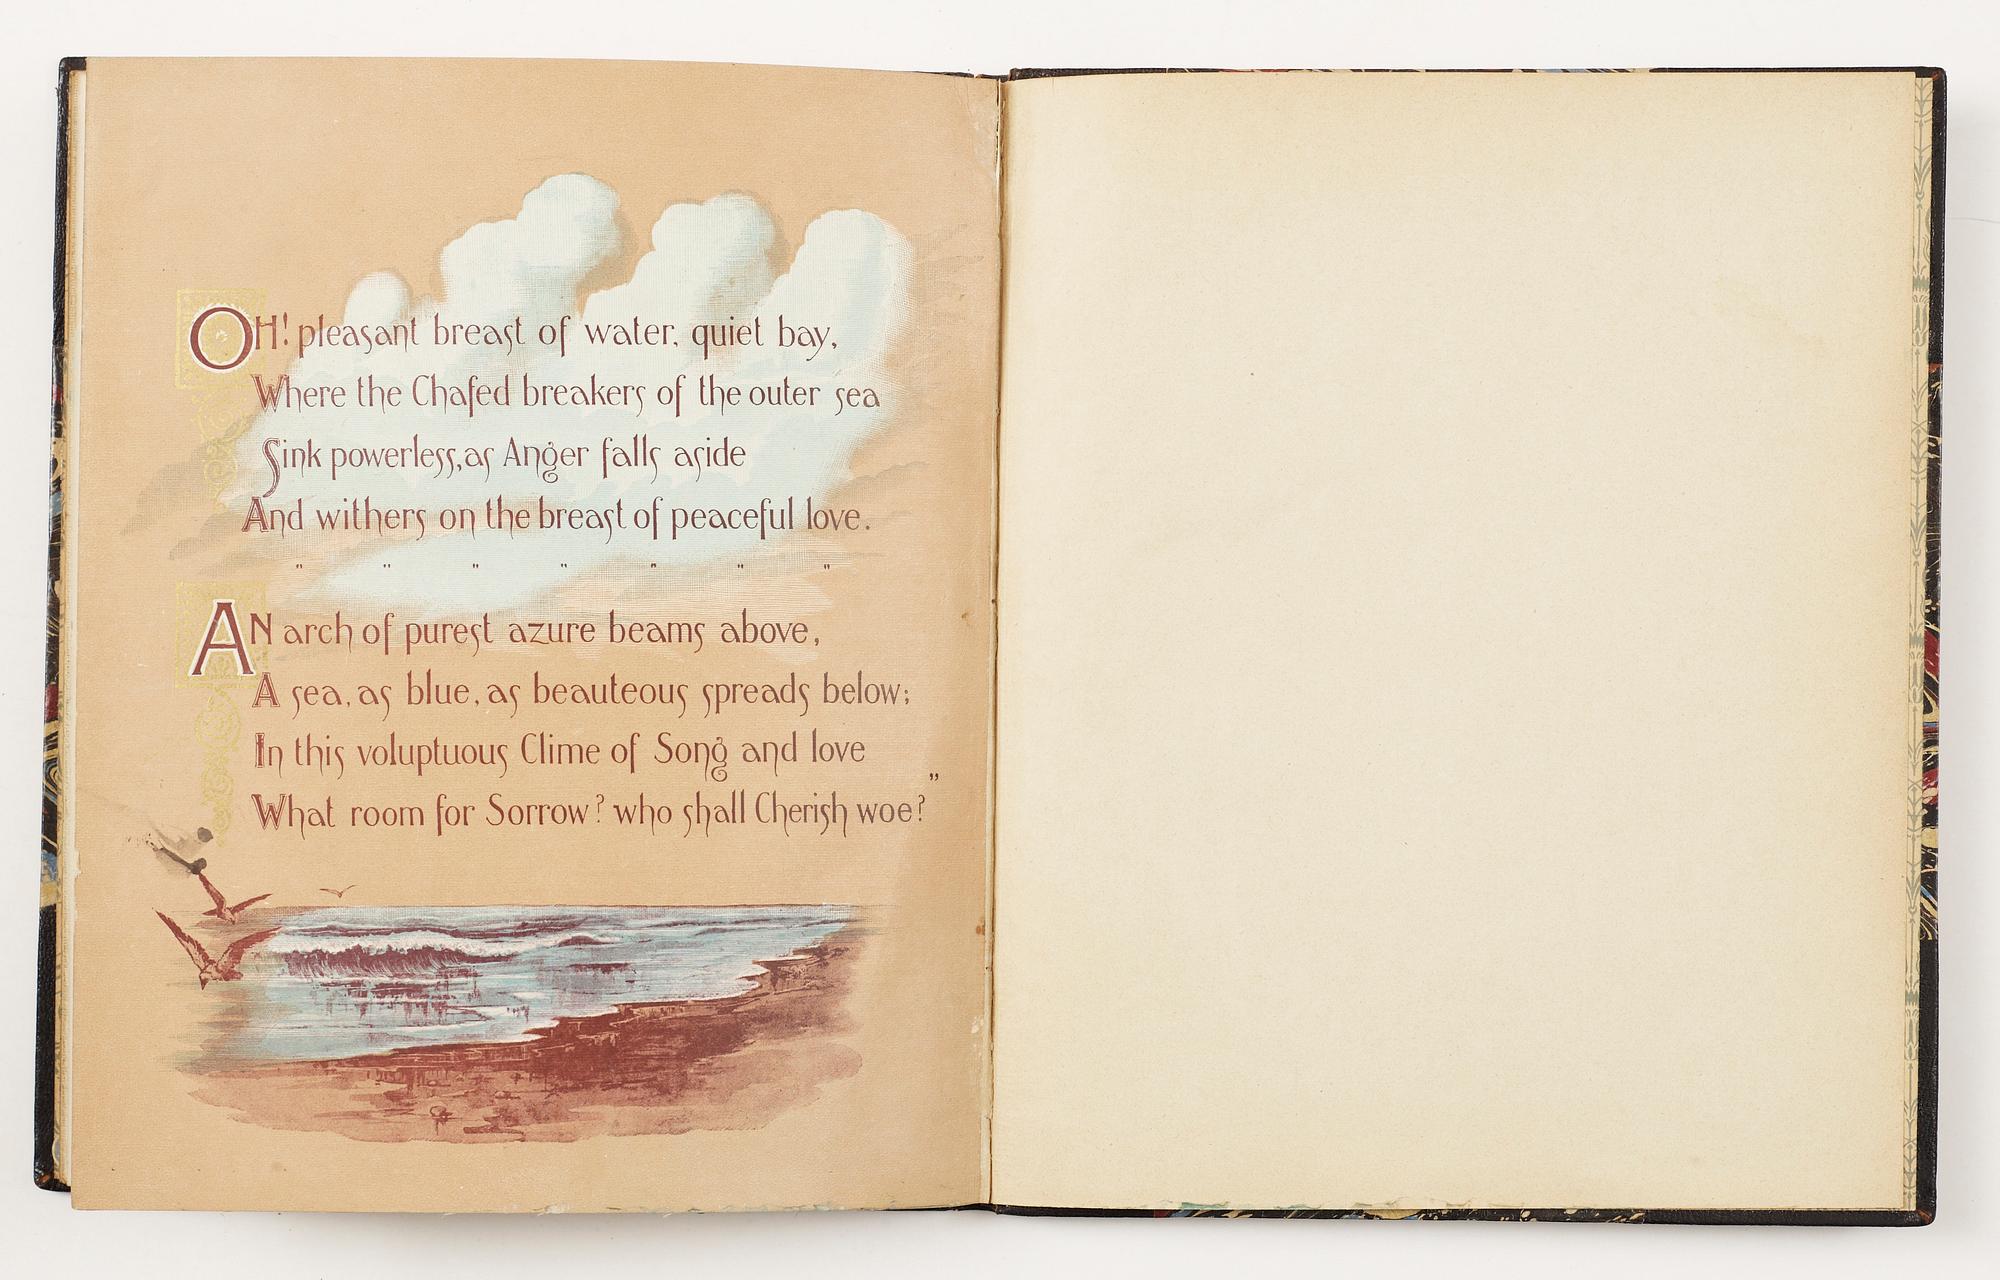 OH! pleasant breast of water, quiet bay,
Where the Chafed breakers of the outer sea
Sink powerless, as Anger falls aside
And withers on the breast of peaceful love.
" " " " " " "
AN arch of purest azure beams above,
A sea, as blue, as beauteous spreads below;
In this voluptuous Clime of Song and love
What room for Sorrow? who shall Cherish woe?"